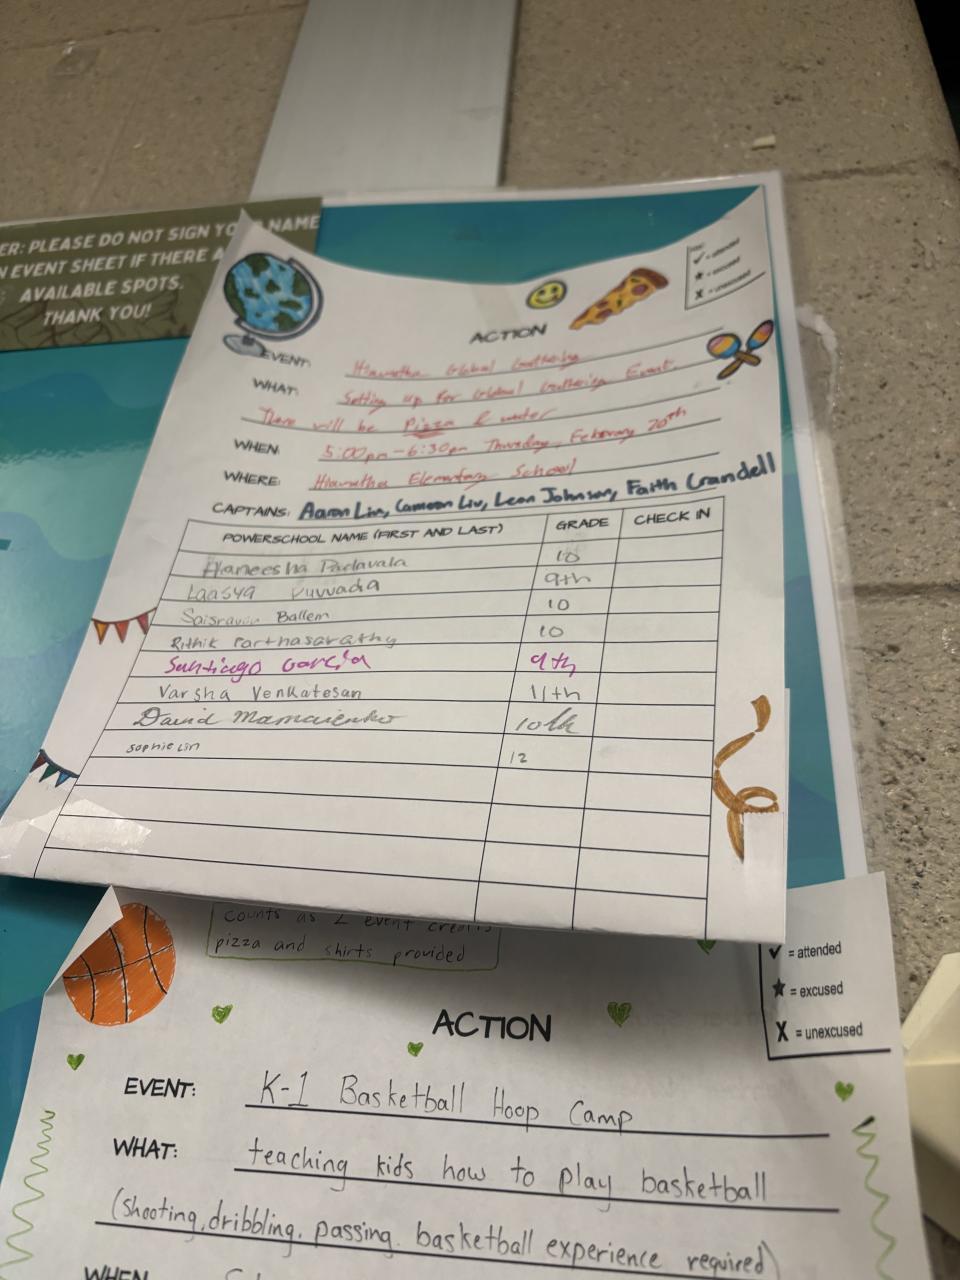 ER: PLEASE DO NOT SIGN YO NAME
N EVENT SHEET IF THERE A
AVAILABLE SPOTS.
THANK YOU!
✓ = attended
★ = excused
X = unexcused
ACTION
EVENT: Hiawatha Global Gathering
WHAT: Setting up for Global Gathering Event.
There will be Pizza & water
WHEN: 5:00pm-6:30pm Thursday, February 20th
WHERE: Hiawatha Elementary School
CAPTAINS: Aaron Lin, Cameron Liu, Leon Johnson, Faith Crandell
POWERSCHOOL NAME (FIRST AND LAST) GRADE CHECK IN
Haneesha Padavala 10
Laasya Vuvvada 9th
Ballem 10
Rithik Parthasarathy 10
Santiago Garcia 9th
Varsha Venkatesan 11th
David 10th
sophie Lin 12
counts as 2 event credits
pizza and shirts provided
✓ = attended
★ = excused
X = unexcused
ACTION
EVENT: K-1 Basketball Hoop Camp
WHAT: teaching kids how to play basketball
(shooting, dribbling, passing. basketball experience required)
WHEN